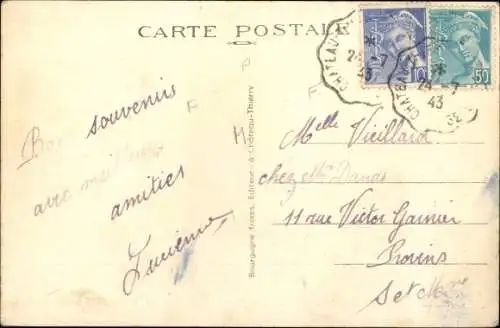 CARTE POSTALE
Bons souvenirs
avec meilleures
amitiés
Lucienne
Bourgogne frères, Éditeur à Château-Thierry
CHATEAU
24-7
43
10
24-7
43
50
Melle Vieillard
chez Mme Danas
11 rue Victor Garnier
Provins
S et Mne